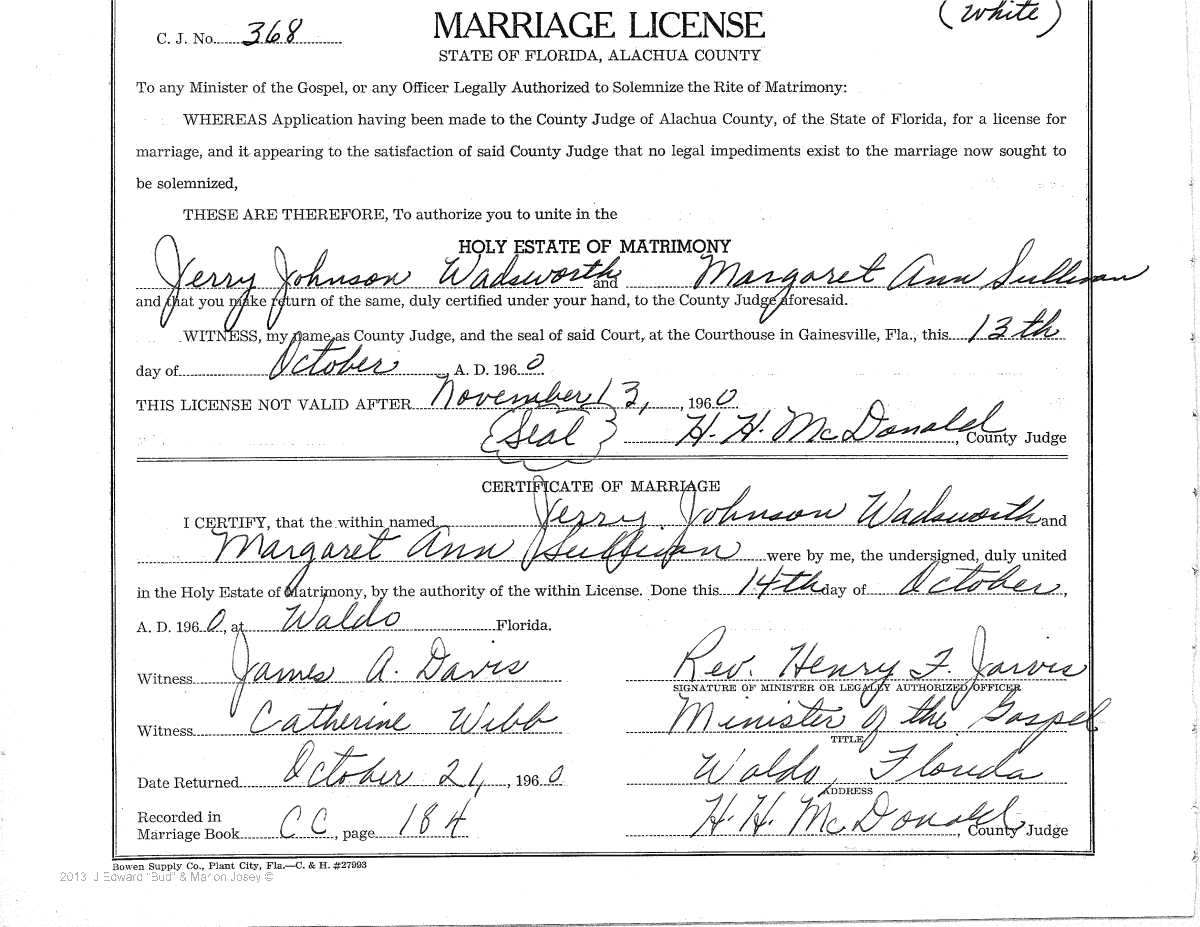 (White)
C. J. No. 368
MARRIAGE LICENSE
STATE OF FLORIDA, ALACHUA COUNTY
To any Minister of the Gospel, or any Officer Legally Authorized to Solemnize the Rite of Matrimony:
WHEREAS Application having been made to the County Judge of Alachua County, of the State of Florida, for a license for
marriage, and it appearing to the satisfaction of said County Judge that no legal impediments exist to the marriage now sought to
be solemnized,
THESE ARE THEREFORE, To authorize you to unite in the
HOLY ESTATE OF MATRIMONY
Jerry Johnson Wadsworth and Margaret Ann Sullivan
and that you make return of the same, duly certified under your hand, to the County Judge aforesaid.
WITNESS, my name as County Judge, and the seal of said Court, at the Courthouse in Gainesville, Fla., this 13th
day of October, A. D. 1960
THIS LICENSE NOT VALID AFTER November 13, , 1960
(Seal) H. H. McDonald, County Judge
CERTIFICATE OF MARRIAGE
I CERTIFY, that the within named Jerry Johnson Wadsworth and
Margaret Ann Sullivan were by me, the undersigned, duly united
in the Holy Estate of Matrimony, by the authority of the within License. Done this 14th day of October,
A. D. 1960, at Waldo Florida.
Witness James A. Davis Rev. Henry F. Jarvis
SIGNATURE OF MINISTER OR LEGALLY AUTHORIZED OFFICER
Witness Catherine Webb Minister of the Gospel
TITLE
Date Returned October 21, 1960 Waldo, Florida
ADDRESS
Recorded in
Marriage Book CC, page 184 H. H. McDonald, County Judge
Bowen Supply Co., Plant City, Fla.—C. & H. #27993
2013 J Edward "Bud" & Marion Josey ©